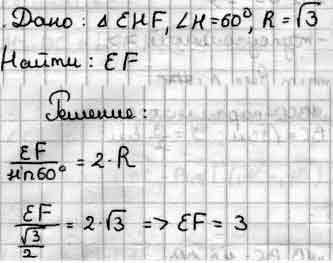 Дано: △ EHF, ∠H=60°, R=√3
Найти: EF
Решение:
EF/sin60° = 2·R
EF/(√3/2) = 2·√3 => EF = 3